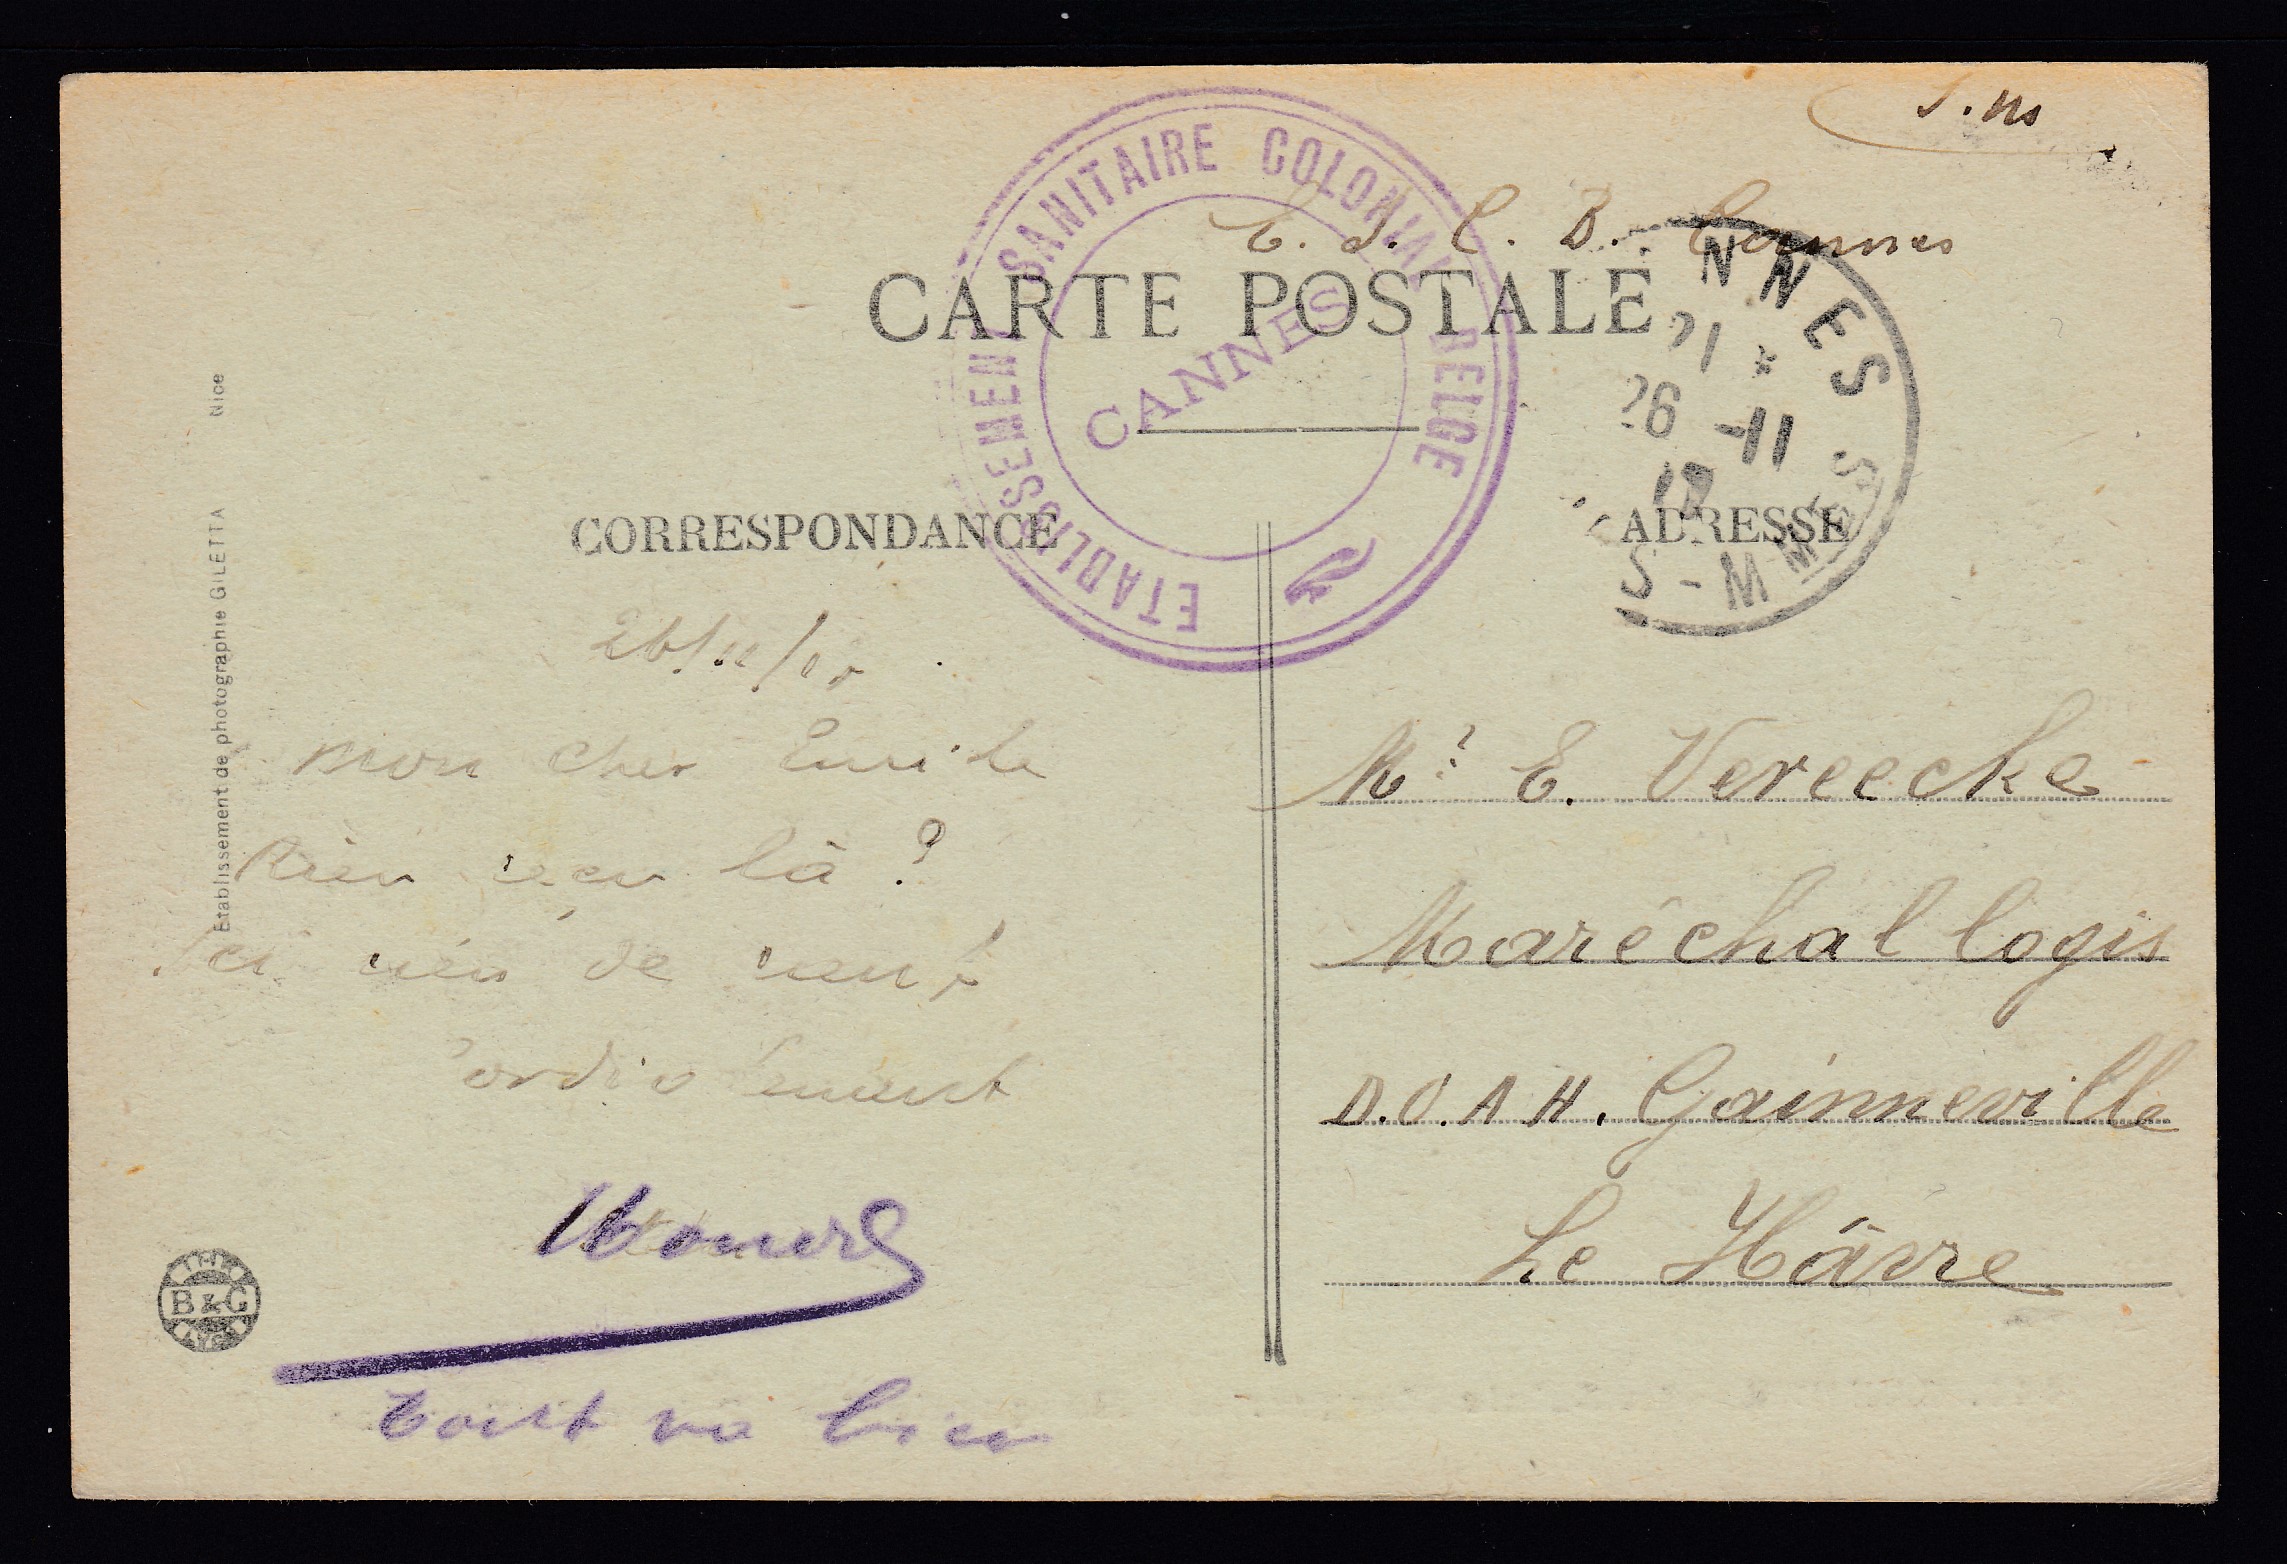 S.M
E. S. C. B. Cannes
CARTE POSTALE
ETABLISSEMENT SANITAIRE COLONIAL BELGE
CANNES
NNES
21 *
26 -11
S - MMES
CORRESPONDANCE
ADRESSE
Etablissement de photographie GILETTA Nice
mon cher Emile
Rien reçu là ?
Ici rien de neuf
Cordialement
tout va bien
Mr E. Vereecke
Maréchal logis
D.O.A H. Gainneville
Le Hâvre
B & G